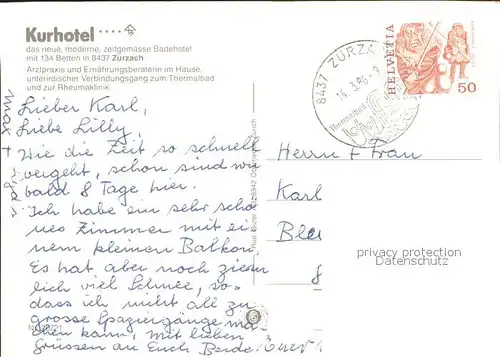 Kurhotel
das neue, moderne, zeitgemässe Badehotel
mit 134 Betten in 8437 Zurzach
Arztpraxis und Ernährungsberaterin im Hause,
unterirdischer Verbindungsgang zum Thermalbad
und zur Rheumaklinik
8437 ZURZA
14.3.86-9
Thermalbad
HELVETIA
50
Lieber Karl,
Liebe Lilly,
Wie die Zeit so schnell
vergeht, schon sind wir
bald 8 Tage hier.
Ich habe ein sehr schö
nes Zimmer mit ei
nem kleinen Balkon
Es hat aber noch ziem
lich viel Schnee, so-
dass ich nicht all zu
grosse Spaziergänge ma
chen kann, mit lieben
Grüssen an Euch Beide. Euer
Max +
Herrn + Frau
Karl
privacy protection
Datenschutz